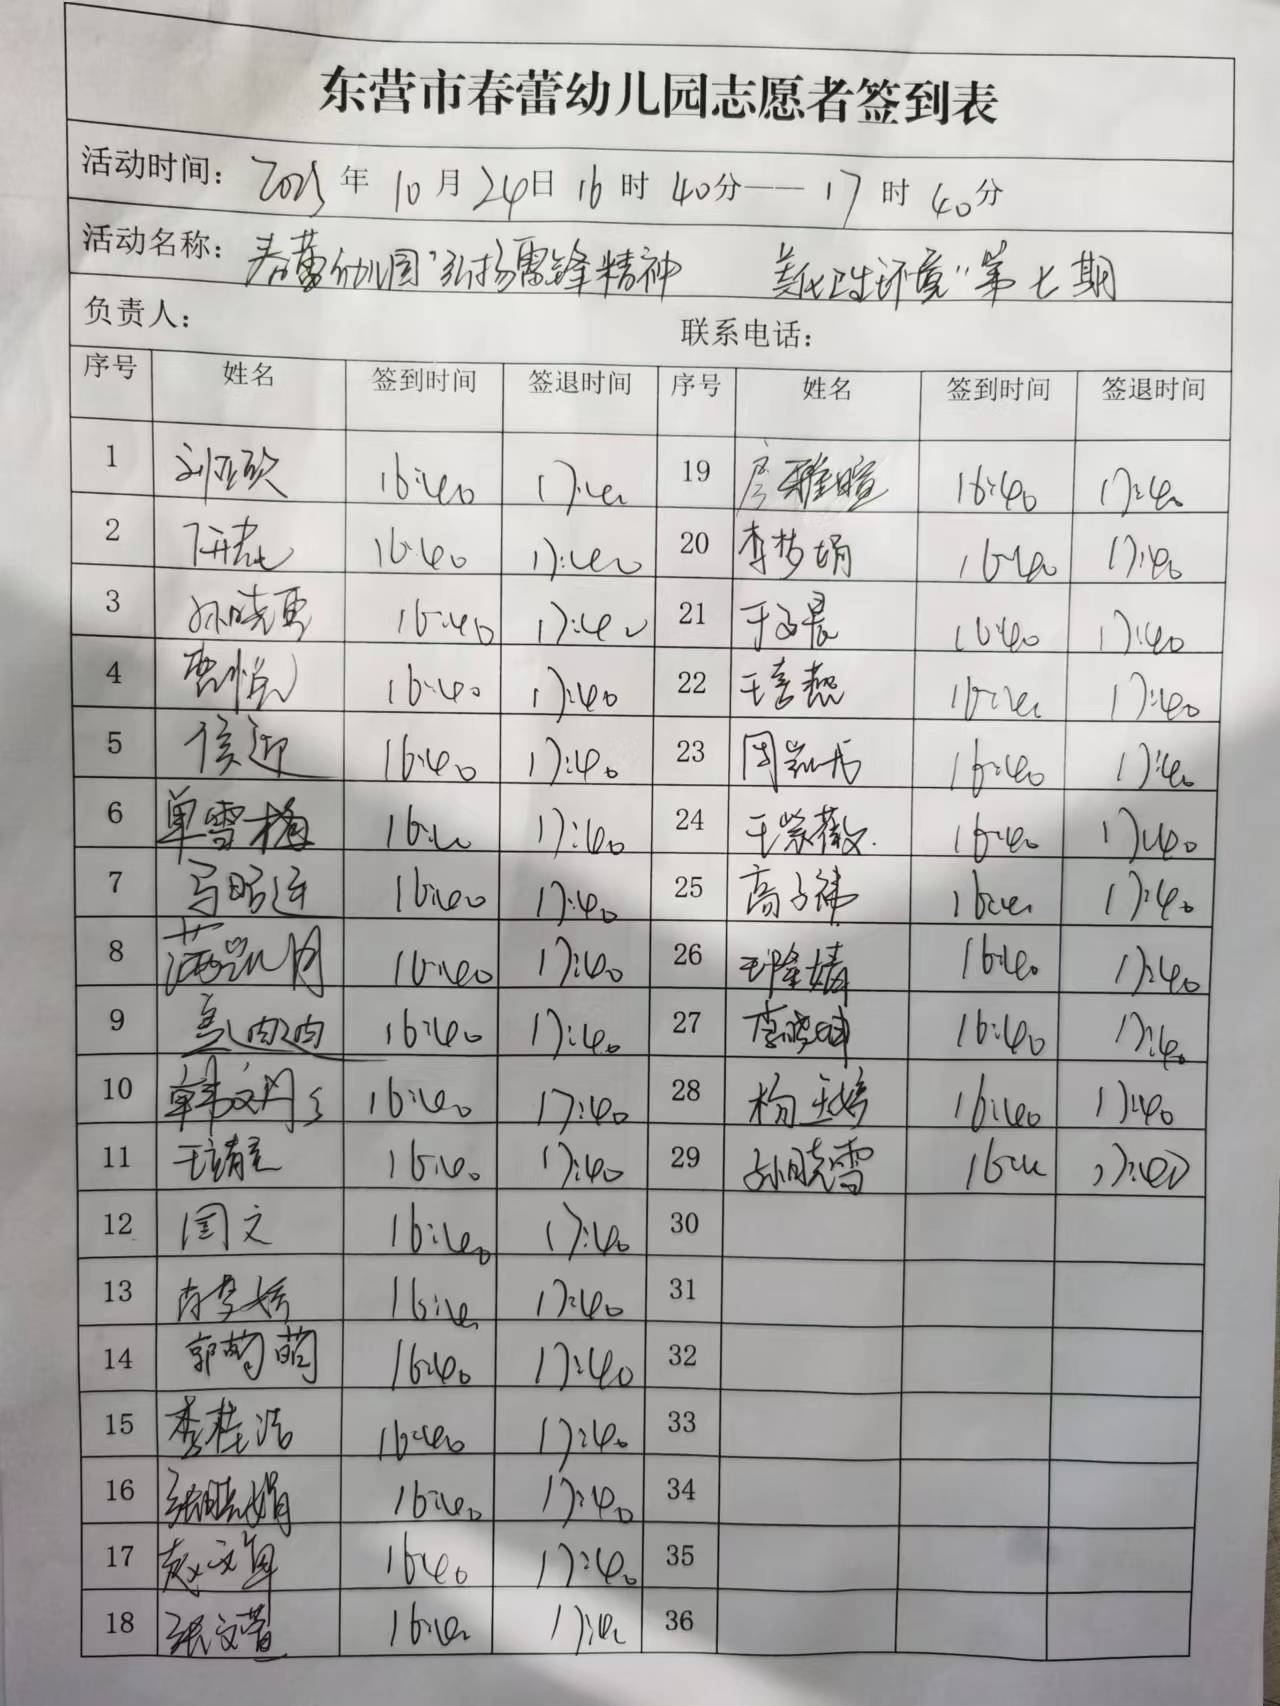 东营市春蕾幼儿园志愿者签到表
活动时间：2025年10月24日16时40分——17时40分
活动名称：春蕾幼儿园"弘扬雷锋精神 美化卫生环境"第七期
负责人： 联系电话：
序号 姓名 签到时间 签退时间 序号 姓名 签到时间 签退时间
1 16:40 17:40 19 16:40 17:40
2 16:40 17:40 20 李梦娟 16:40 17:40
3 16:40 17:40 21 于子晨 16:40 17:40
4 贾悦 16:40 17:40 22 王喜燕 16:40 17:40
5 侯迎 16:40 17:40 23 周凯丹 16:40 17:40
6 单雪梅 16:40 17:40 24 王紫薇 16:40 17:40
7 马昭连 16:40 17:40 25 高子祎 16:40 17:40
8 满凯月 16:40 17:40 26 王隆婧 16:40 17:40
9 16:40 17:40 27 李晓坤 16:40 17:40
10 韩文月 16:40 17:40 28 杨玉婷 16:40 17:40
11 王靖 16:40 17:40 29 孙晓雪 16:40 17:40
12 闫文 16:40 17:40 30
13 肖梦婷 16:40 17:40 31
14 郭萌萌 16:40 17:40 32
15 李桂洁 16:40 17:40 33
16 张晓娟 16:40 17:40 34
17 赵文 16:40 17:40 35
18 张文萱 16:40 17:40 36